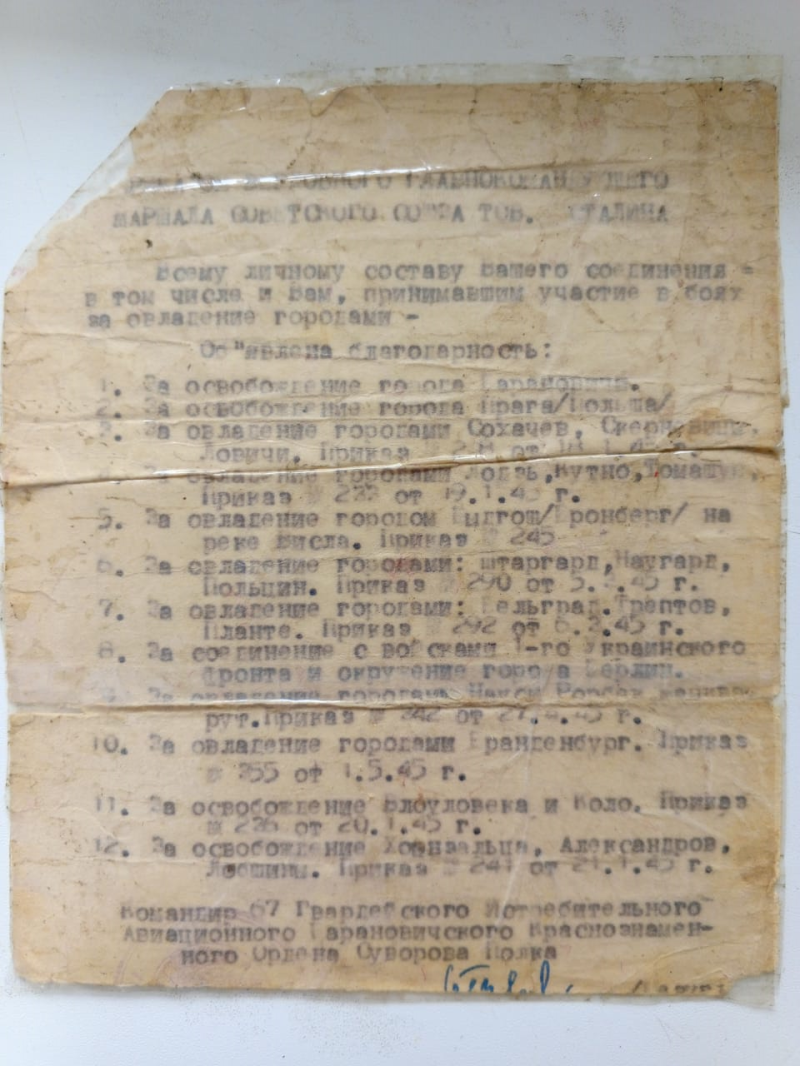 ВЕРХОВНОГО ГЛАВНОКОМАНДУЮЩЕГО
МАРШАЛА СОВЕТСКОГО СОЮЗА ТОВ. СТАЛИНА
Всему личному составу Вашего соединения -
в том числе и Вам, принимавшим участие в боях
за овладение городами -
Об"явлена благодарность:
1. За освобождение города Барановичи.
2. За освобождение города Прага/Польша/
3. За овладение городами Сохачев, Скерневицы,
Ловичи. Приказ от 18.1.45 г.
За овладение городами Лодзь, Кутно, Томашув,
Приказ № 233 от 19.1.45 г.
5. За овладение городом Быдгош/Бромберг/ на
реке Висла. Приказ № 245
6. За овладение городами: Штаргард, Наугард,
Польцин. Приказ № 290 от 5.3.45 г.
7. За овладение городами: Бельград. Трептов,
Планте. Приказ № 292 от 6.3.45 г.
8. За соединение с войсками 1-го Украинского
фронта и окружение города Берлин.
9. За овладение городами
рут. Приказ № 342 от 27.4.45 г.
10. За овладение городами Бранденбург. Приказ
№ 355 от 1.5.45 г.
11. За освобождение Влоуловека и Коло. Приказ
№ 236 от 20.1.45 г.
12. За освобождение Александров,
Приказ № 241 от 21.1.45 г.
Командир 67 Гвардейского Истребительного
Авиационного Барановичского Краснознамен-
ного Ордена Суворова Полка